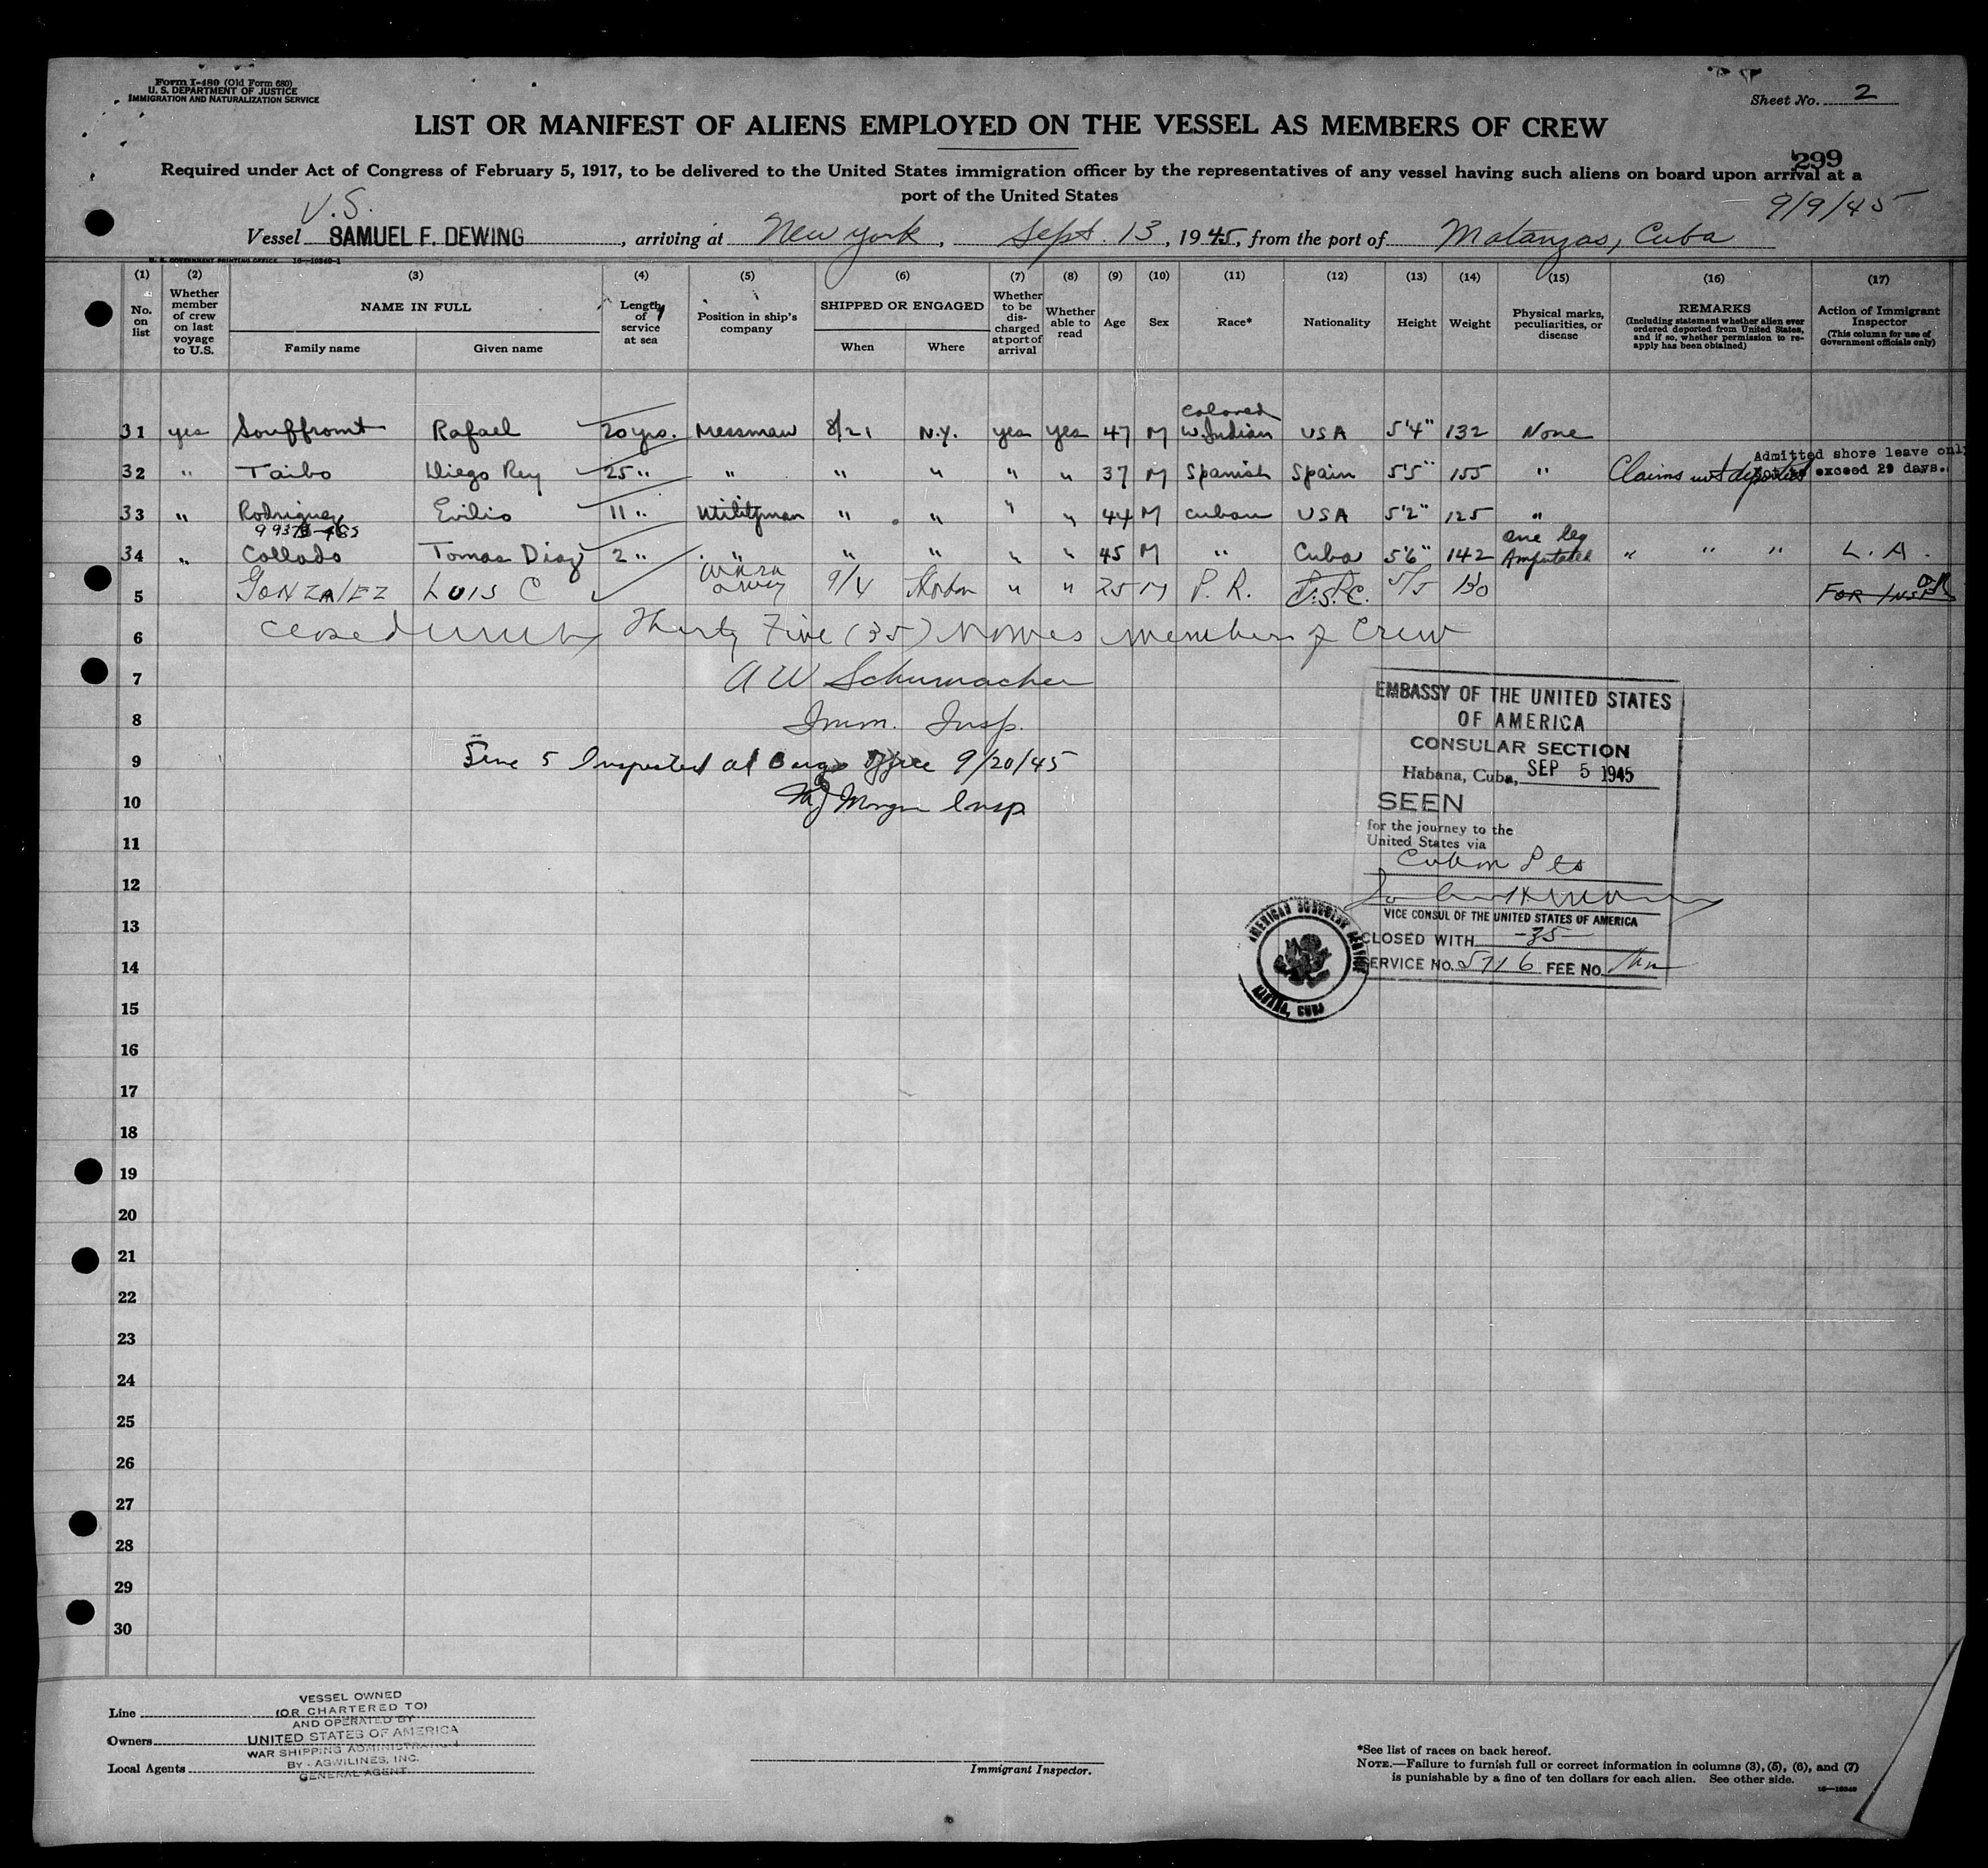 Form I-480 (Old Form 680)
U. S. DEPARTMENT OF JUSTICE
IMMIGRATION AND NATURALIZATION SERVICE
Sheet No. 2
LIST OR MANIFEST OF ALIENS EMPLOYED ON THE VESSEL AS MEMBERS OF CREW
299
Required under Act of Congress of February 5, 1917, to be delivered to the United States immigration officer by the representatives of any vessel having such aliens on board upon arrival at a
port of the United States
9/9/45
V.S.
Vessel SAMUEL F. DEWING, arriving at New York, Sept. 13, 1945, from the port of Matanzas, Cuba
U. S. GOVERNMENT PRINTING OFFICE 16-10340-1
(1) (2) (3) (4) (5) (6) (7) (8) (9) (10) (11) (12) (13) (14) (15) (16) (17)
No. on list
Whether member of crew on last voyage to U.S.
NAME IN FULL
Family name
Given name
Length of service at sea
Position in ship's company
SHIPPED OR ENGAGED
When
Where
Whether to be discharged at port of arrival
Whether able to read
Age
Sex
Race*
Nationality
Height
Weight
Physical marks, peculiarities, or disease
REMARKS
(Including statement whether alien ever ordered deported from United States, and if so, whether permission to reapply has been obtained)
Action of Immigrant Inspector
(This column for use of Government officials only)
31 yes Souffront Rafael 20 yrs. Messman 8/21 N.Y. yes yes 47 M colored W. Indian USA 5'4" 132 None
32 " Taibo Diego Rey 25 " " " " " " 37 M Spanish Spain 5'5" 155 " Claims not deported
Admitted shore leave only
exceed 29 days.
33 " Rodriguez Evilio 11 " Utilityman " " " " 44 M Cuban USA 5'2" 125 "
34 " Collado Tomas Diaz 2 " " " " " " 45 M " Cuba 5'6" 142 one leg Amputated " " " L.A.
5 GONZALEZ LUIS C 9/4 " " 25 M P.R. U.S.C. 5/5 130 FOR INSP
6 Closed Thirty Five (35) Names members of Crew
7 A W Schumacher
8 Imm. Insp.
9 Line 5 Inspected at Barge Office 9/20/45
10 Morgan Insp
11
12
13
14
15
16
17
18
19
20
21
22
23
24
25
26
27
28
29
30
EMBASSY OF THE UNITED STATES
OF AMERICA
CONSULAR SECTION
Habana, Cuba, SEP 5 1945
SEEN
for the journey to the
United States via
Cuban Pts
VICE CONSUL OF THE UNITED STATES OF AMERICA
CLOSED WITH -35-
SERVICE NO. 5716 FEE NO.
AMERICAN CONSULAR SERVICE
HABANA, CUBA
Line
Owners
Local Agents
VESSEL OWNED
(OR CHARTERED TO)
AND OPERATED BY
UNITED STATES OF AMERICA
WAR SHIPPING ADMINISTRATION
BY - AGWILINES, INC.
GENERAL AGENT
Immigrant Inspector.
*See list of races on back hereof.
NOTE.—Failure to furnish full or correct information in columns (3), (5), (6), and (7)
is punishable by a fine of ten dollars for each alien. See other side.
16—10340